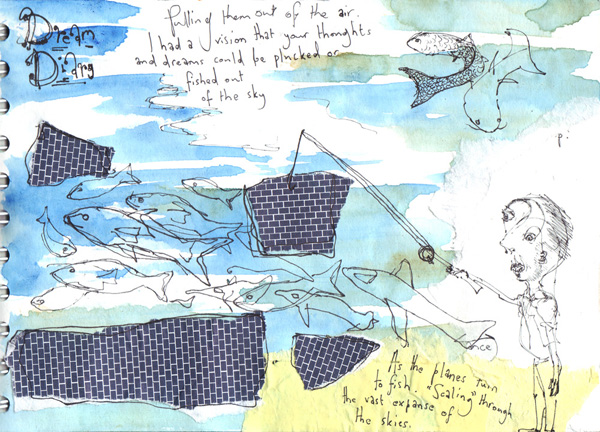 Dream
Diary
Pulling them out of the air.
I had a vision that your thoughts
and dreams could be plucked or
fished out
of the sky
As the planes turn
to fish. "Scaling" through
the vast expanse of
the skies.